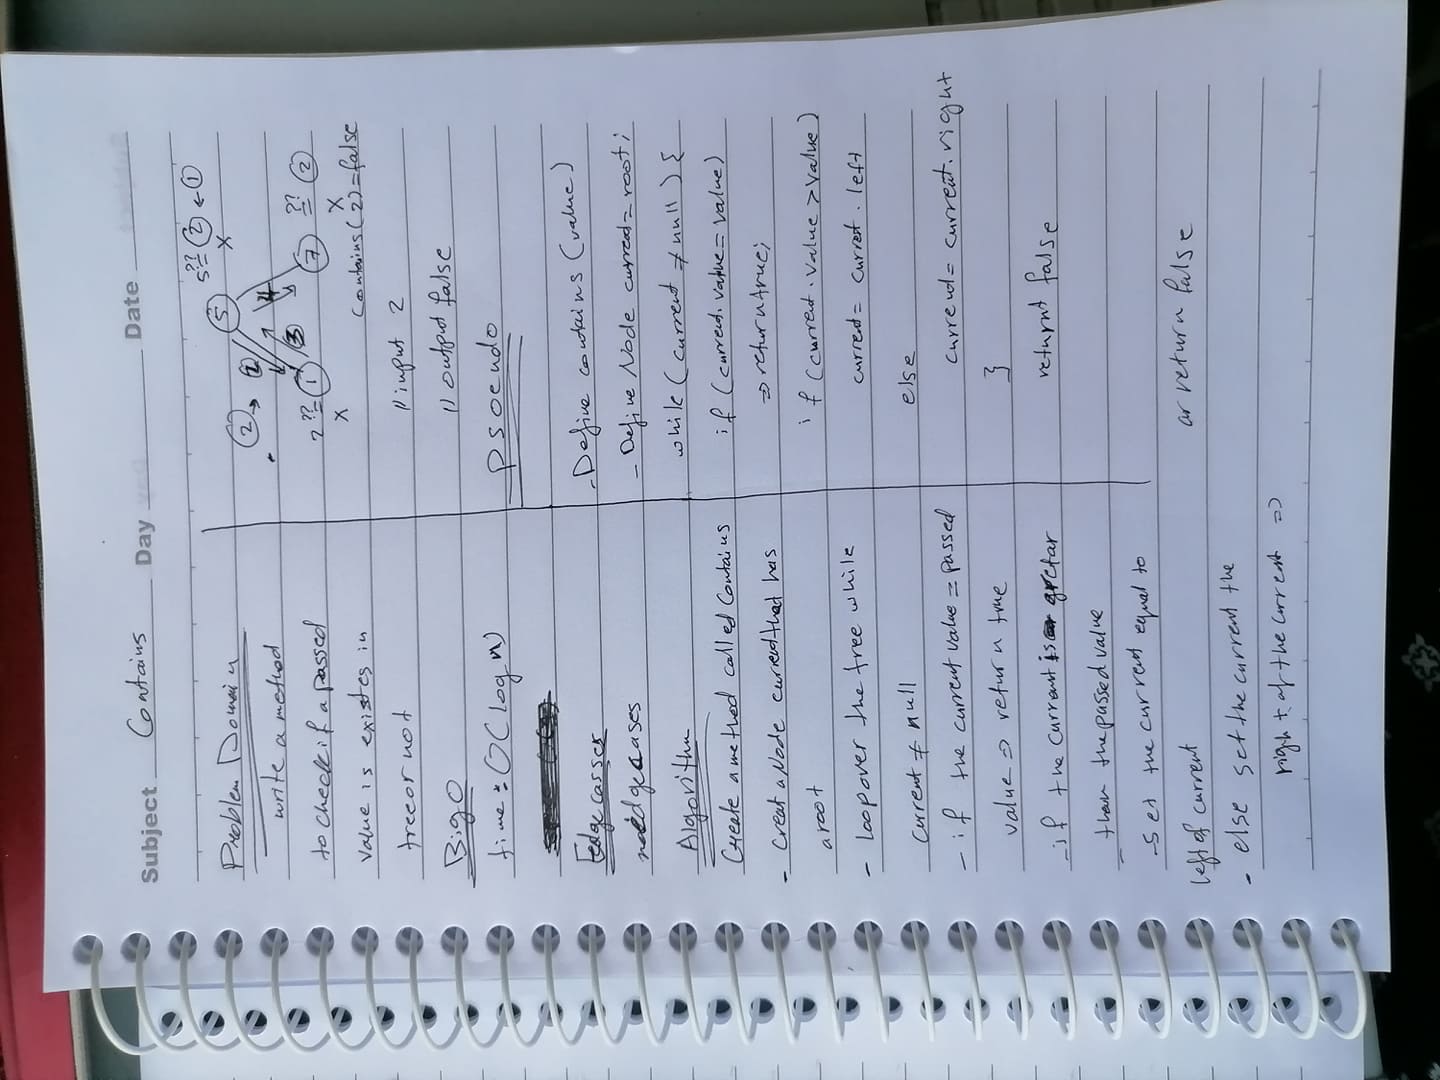 Subject Contains Day Date
Problem Domain
write a method
to check if a passed
value is existes in
tree or not
Big O
time : O(log n)
Edge casses
no edge cases
Algorithm
Create a method called Contains
- Creat a Node current that has
a root
- loop over the tree while
current ≠ null
- if the current value = passed
value => return true
- if the current is gretar
than the passed value
- Set the current equal to
left of current
- else set the current the
right of the current =>
5 ??= 2 ← 1
X
5
2 → 2
4
3
2 ??= 1
X
7 ??= 2
X
contains(2)=false
// input 2
// output false
Psoendo
- Define contains (value)
- Define Node current=root;
while (current ≠ null) {
if (current.value = value)
=> return true;
if (current.value > value)
current = current.left
else
current = current.right
}
returnt false
ar return false